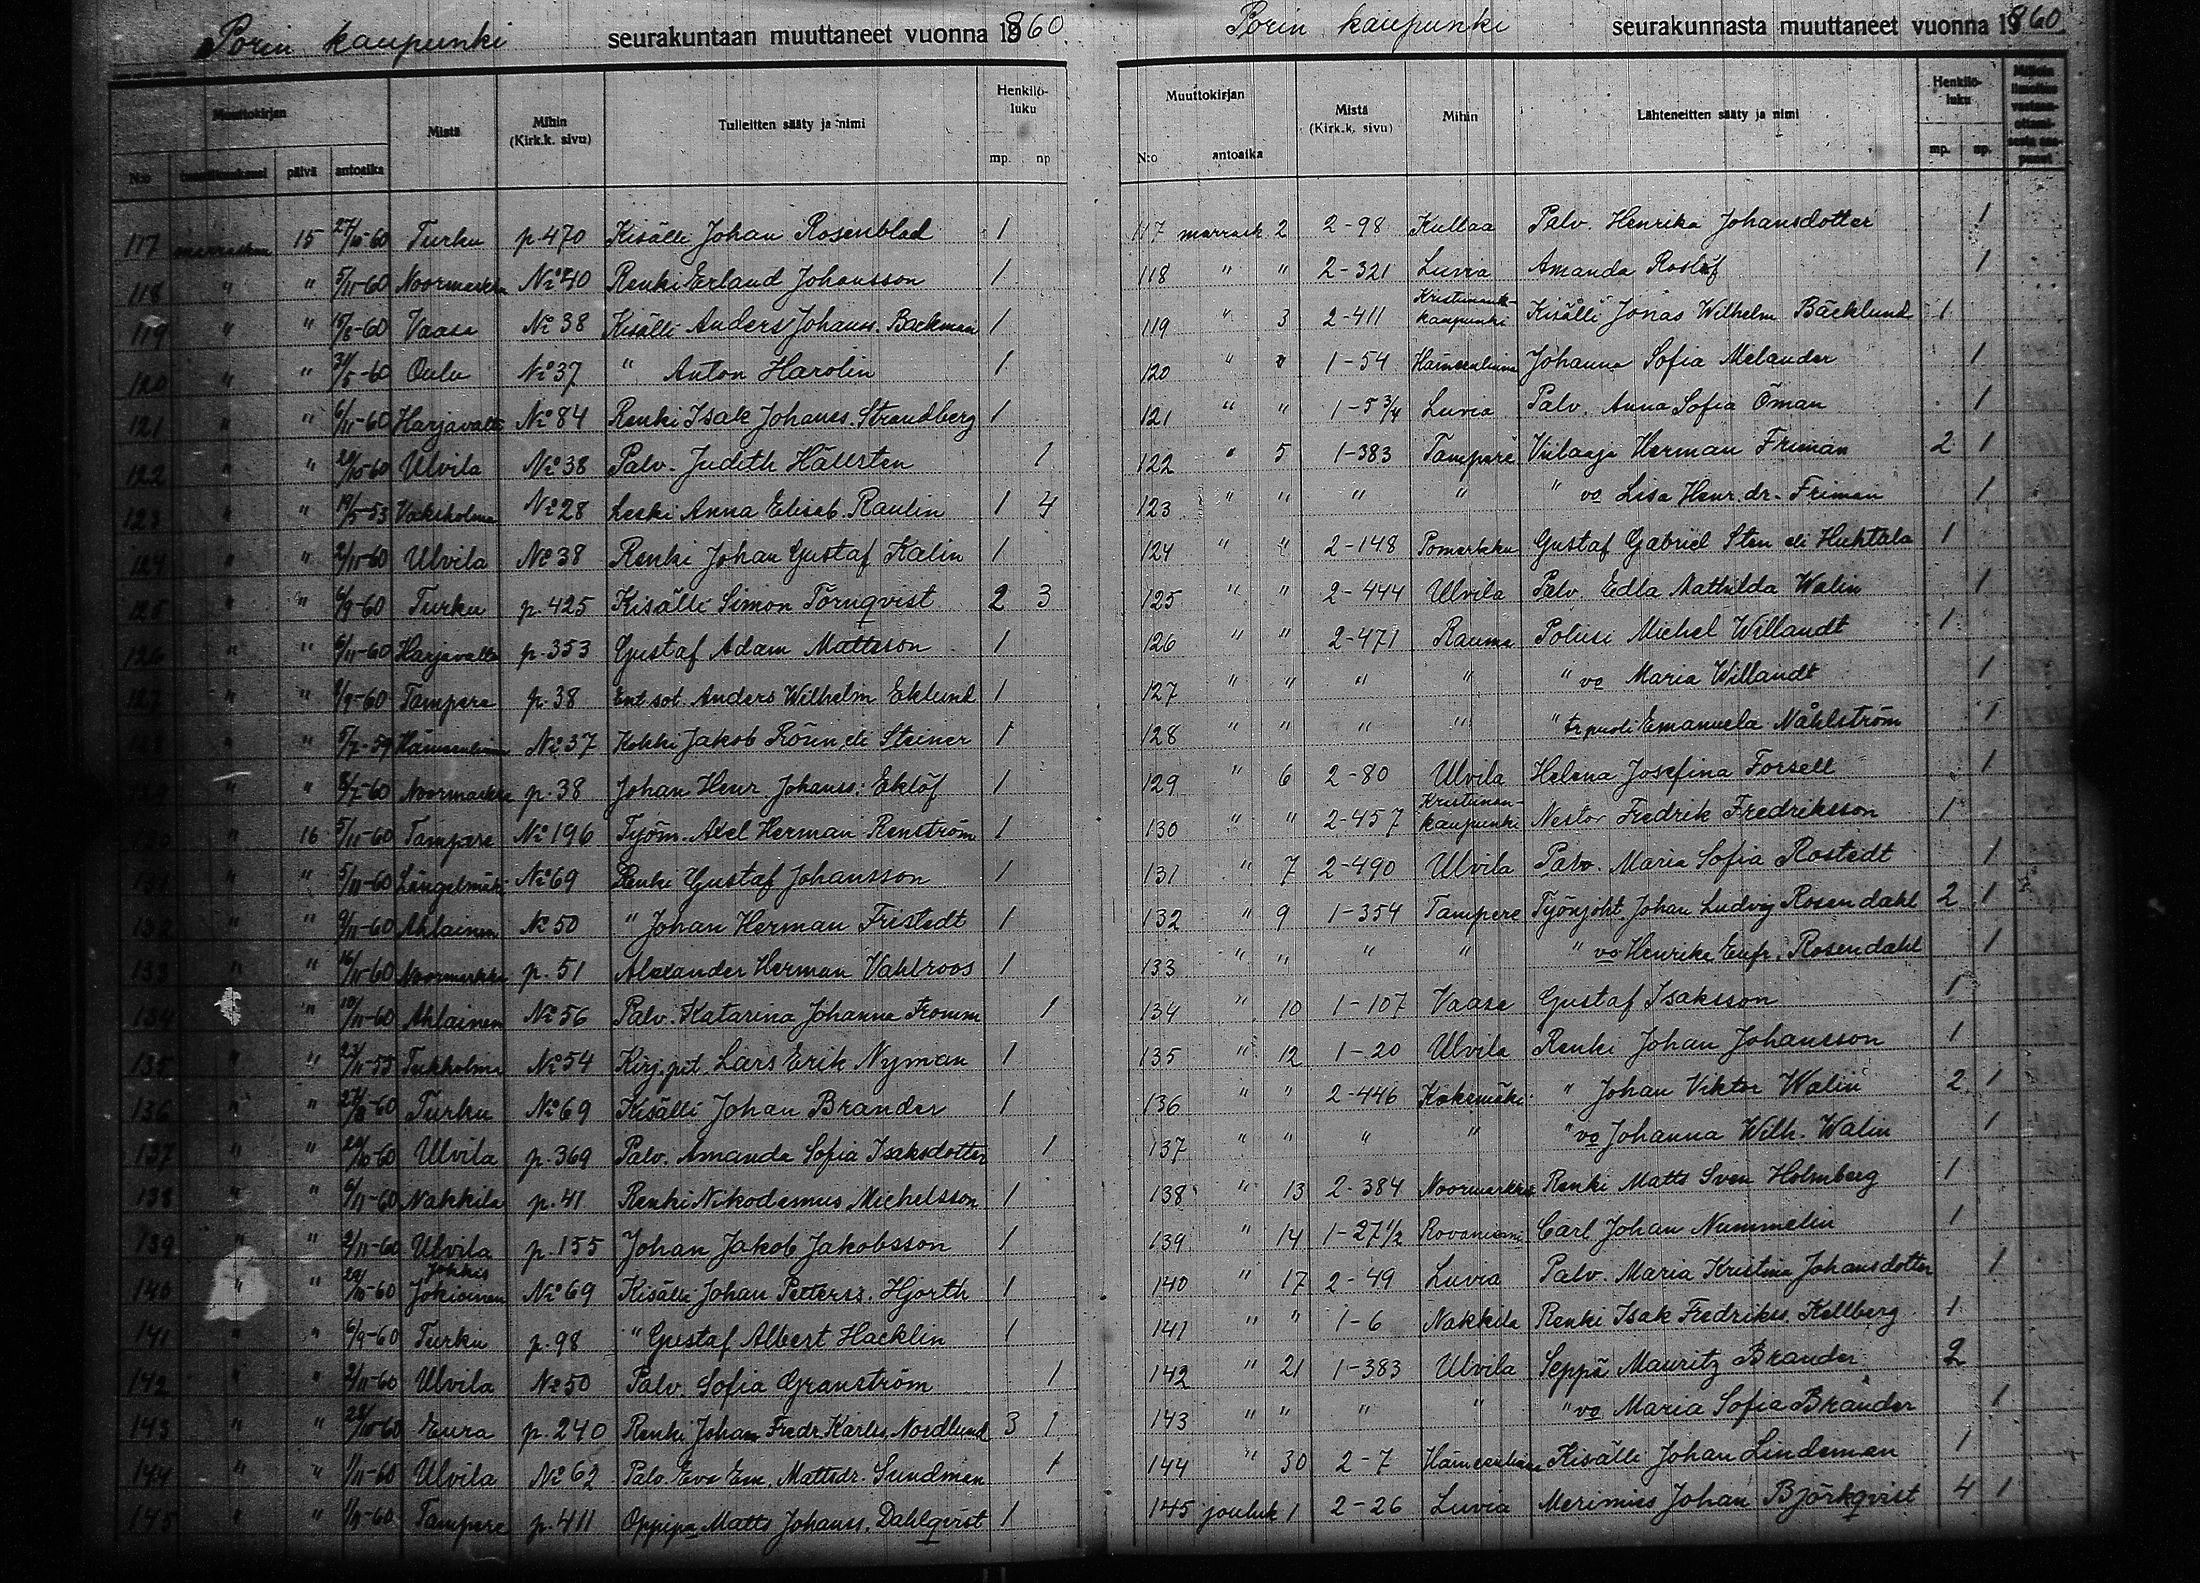 Porin kaupunki seurakuntaan muuttaneet vuonna 1860
Muuttokirjan Mistä Mihin (Kirk.k. sivu) Tulleitten sääty ja nimi Henkilö-luku
N:o päivä antoaika mp. np
117 marraskuu 15 27/10-60 Turku p. 470 Kisälli Johan Rosenblad 1
118 " " 5/11-60 Noormarkku No 40 Renki Erland Johansson 1
119 " " 15/8-60 Vaasa No 38 Kisälli Anders Johanss. Backman 1
120 " " 31/5-60 Oulu No 37 " Anton Harolin 1
121 " " 6/11-60 Harjavalta No 84 Renki Isak Johanss. Strandberg 1
122 " " 29/10-60 Ulvila No 38 Palv. Judith Hällsten 1
123 " " 19/5-53 Vaksholma No 28 Leski Anna Elisab. Raulin 1 4
124 " " 2/11-60 Ulvila No 38 Renki Johan Gustaf Kalin 1
125 " " 6/9-60 Turku p. 425 Kisälli Simon Törnqvist 2 3
126 " " 6/11-60 Harjavalta p. 353 Gustaf Adam Mattsson 1
127 " " /9-60 Tampere p. 38 Ent. sot. Anders Wilhelm Eklund 1
" 5/7-59 Hämeenlinna No 37 Kokki Jakob Rönn eli Steiner 1
" " 8/7-60 Noormarkku p. 38 Johan Henr. Johanss. Eklöf 1
130 " 16 5/11-60 Tampere No 196 Työm. Axel Herman Renström 1
131 " " 5/11-60 Längelmäki No 69 Renki Gustaf Johansson 1
132 " " 9/11-60 Ahlainen No 50 " Johan Herman Fristedt 1
133 " " 16/11-60 Noormarkku p. 51 Alexander Herman Vahlroos 1
134 " 10/11-60 Ahlainen No 56 Palv. Katarina Johanna Fromm 1
135 " " 23/11-55 Tukholma No 54 Kirj.pit. Lars Erik Nyman 1
136 " " 27/8-60 Turku No 69 Kisälli Johan Brander 1
137 " " 29/10-60 Ulvila p. 369 Palv. Amanda Sofia Isaksdotter 1
138 " " 6/11-60 Nakkila p. 41 Renki Nikodemus Michelsson 1
139 " 2/11-60 Ulvila p. 155 Johan Jakob Jakobsson 1
Jokkis
140 " " 29/10-60 Jokioinen No 69 Kisälli Johan Petterss. Hjorth 1
141 " " 6/9-60 Turku p. 98 " Gustaf Albert Hacklin 1
142 " " 2/11-60 Ulvila No 50 Palv. Sofia Granström 1
143 " " 28/10-60 Eura p. 240 Renki Johan Fredr. Karlss. Nordlund 3 1
144 " " 1/11-60 Ulvila No 62 Palv. Eva Em. Mattsdr. Sundman 1
145 " " 1/9-60 Tampere p. 411 Oppipa Matts Johanss. Dahlqvist 1
Porin kaupunki seurakunnasta muuttaneet vuonna 1860
Muuttokirjan Mistä (Kirk.k. sivu) Mihin Lähteneitten sääty ja nimi Henkilö-luku
N:o antoaika mp. np.
117 marrask 2 2-98 Kullaa Palv. Henrika Johansdotter 1
118 " " 2-321 Luvia Amanda Roslöf 1
119 " 3 2-411 Kristiinankaupunki Kisälli Jonas Wilhelm Bäcklund 1
120 " " 1-54 Hämeenlinna Johanna Sofia Melander 1
121 " " 1-5 3/4 Luvia Palv. Anna Sofia Öman 1
122 " 5 1-383 Tampere Viilaaja Herman Friman 2 1
123 " " " " " vo Lisa Henr. dr. Friman 1
124 " " 2-148 Pomarkku Gustaf Gabriel Sten eli Huhtala 1
125 " " 2-444 Ulvila Palv. Edla Mathilda Walin 1
126 " " 2-471 Rauma Poliisi Michel Willandt 1
127 " " " " " vo Maria Willandt 1
128 " " " " " trpuoli Emanuela Nåhlström 1
129 " 6 2-80 Ulvila Helena Josefina Forsell 1
130 " " 2-457 Kristiinankaupunki Nestor Fredrik Fredriksson 1
131 " 7 2-490 Ulvila Palv. Maria Sofia Rostedt 1
132 " 9 1-354 Tampere Työnjoht. Johan Ludvig Rosendahl 2 1
133 " " " " " vo Henrika Eufr. Rosendahl 1
134 " 10 1-107 Vaasa Gustaf Isaksson 1
135 " 12 1-20 Ulvila Renki Johan Johansson 1
136 " " 2-446 Kokemäki " Johan Viktor Walin 2 1
137 " " " " " vo Johanna Wilh. Walin 1
138 " 13 2-384 Noormarkku Renki Matts Sven Holmberg 1
139 " 14 1-27 1/2 Rovaniemi Carl Johan Nummelin 1
140 " 17 2-49 Luvia Palv. Maria Kristina Johansdotter 1
141 " " 1-6 Nakkila Renki Isak Fredrikss. Kellberg 1
142 " 21 1-383 Ulvila Seppä Mauritz Brander 2
143 " " " " " vo Maria Sofia Brander 1
144 " 30 2-7 Hämeenlinna Kisälli Johan Lindeman 1
145 jouluk 1 2-26 Luvia Merimies Johan Björkqvist 4 1